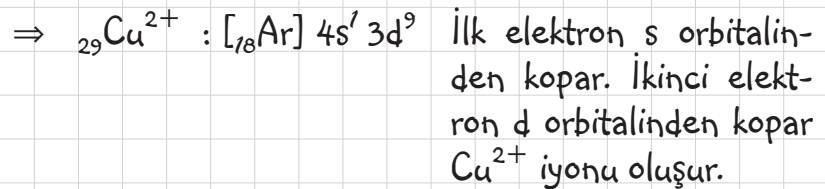 ⇒ ₂₉Cu²⁺ : [₁₈Ar] 4s¹ 3d⁹ İlk elektron s orbitalin-
den kopar. İkinci elekt-
ron d orbitalinden kopar
Cu²⁺ iyonu oluşur.